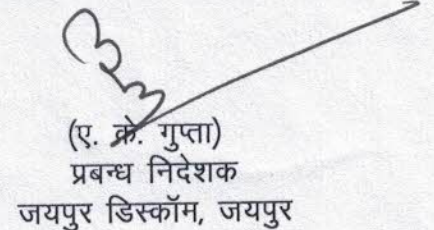 (ए. के. गुप्ता)
प्रबन्ध निदेशक
जयपुर डिस्कॉम, जयपुर